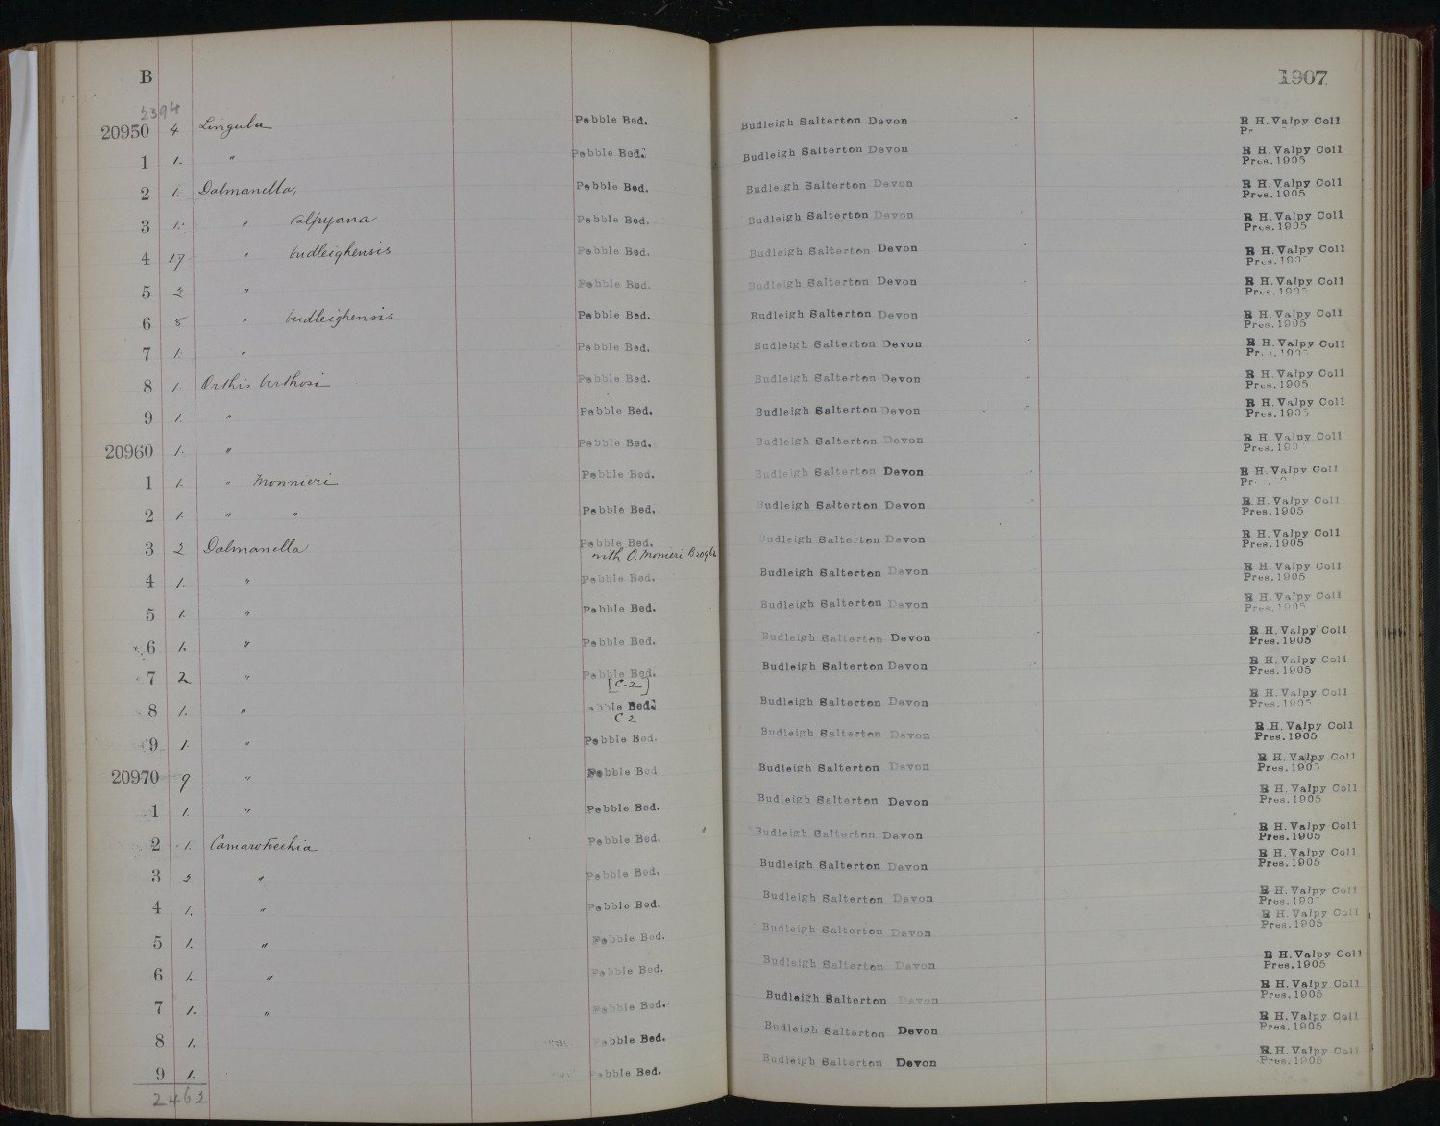 B 1907
2394
20950 4 Lingula Pebble Bed. Budleigh Salterton Devon R H. Valpy Coll
1 1. " Pebble Bed. Budleigh Salterton Devon R H. Valpy Coll
Pres. 1905
2 1. Dalmanella, Pebble Bed. Budleigh Salterton Devon R H. Valpy Coll
Pres. 1905
3 1. " valpyana Pebble Bed. Budleigh Salterton Devon R H. Valpy Coll
Pres. 1905
4 17 " budleighensis Pebble Bed. Budleigh Salterton Devon R H. Valpy Coll
Pres. 1905
5 2 " Pebble Bed. Budleigh Salterton Devon R H. Valpy Coll
Pres. 1905
6 5 " budleighensis Pebble Bed. Budleigh Salterton Devon R H. Valpy Coll
Pres. 1905
7 1. " Pebble Bed. Budleigh Salterton Devon R H. Valpy Coll
Pres. 1905
8 1. Orthis berthosi Pebble Bed. Budleigh Salterton Devon R H. Valpy Coll
Pres. 1905
9 1. " Pebble Bed. Budleigh Salterton Devon R H. Valpy Coll
Pres. 1905
20960 1. " Pebble Bed. Budleigh Salterton Devon R H. Valpy Coll
Pres. 190
1 1. " Monnieri Pebble Bed. Budleigh Salterton Devon R H. Valpy Coll
2 1. " " Pebble Bed. Budleigh Salterton Devon R H. Valpy Coll
Pres. 1905
3 2 Dalmanella Pebble Bed. Budleigh Salterton Devon R H. Valpy Coll
with O. Monieri Pres. 1905
4 1. " Pebble Bed. Budleigh Salterton Devon R H. Valpy Coll
Pres. 1905
5 1. " Pebble Bed. Budleigh Salterton Devon R H. Valpy Coll
Pres. 1905
6 1. " Pebble Bed. Budleigh Salterton Devon R H. Valpy Coll
Pres. 1905
7 2 " Pebble Bed. Budleigh Salterton Devon R H. Valpy Coll
[C-2] Pres. 1905
8 1. " Pebble Bed. Budleigh Salterton Devon R H. Valpy Coll
C 2 Pres. 1905
9 1. " Pebble Bed. Budleigh Salterton Devon R H. Valpy Coll
Pres. 1905
20970 9 " Pebble Bed Budleigh Salterton Devon R H. Valpy Coll
Pres. 1905
1 1. " Pebble Bed. Budleigh Salterton Devon R H. Valpy Coll
Pres. 1905
2 1. Camarotoechia Pebble Bed. Budleigh Salterton Devon R H. Valpy Coll
Pres. 1905
3 " Pebble Bed. Budleigh Salterton Devon R H. Valpy Coll
Pres. 1905
4 1. " Pebble Bed. Budleigh Salterton Devon R H. Valpy Coll
Pres. 190
5 1. " Pebble Bed. Budleigh Salterton Devon R H. Valpy Coll
Pres. 1905
6 1. " Pebble Bed. Budleigh Salterton Devon R H. Valpy Coll
Pres. 1905
7 1. " Pebble Bed. Budleigh Salterton Devon R H. Valpy Coll
Pres. 1905
8 1. Pebble Bed. Budleigh Salterton Devon R H. Valpy Coll
Pres. 1905
9 1. Pebble Bed. Budleigh Salterton Devon R H. Valpy Coll
Pres. 1905
2463